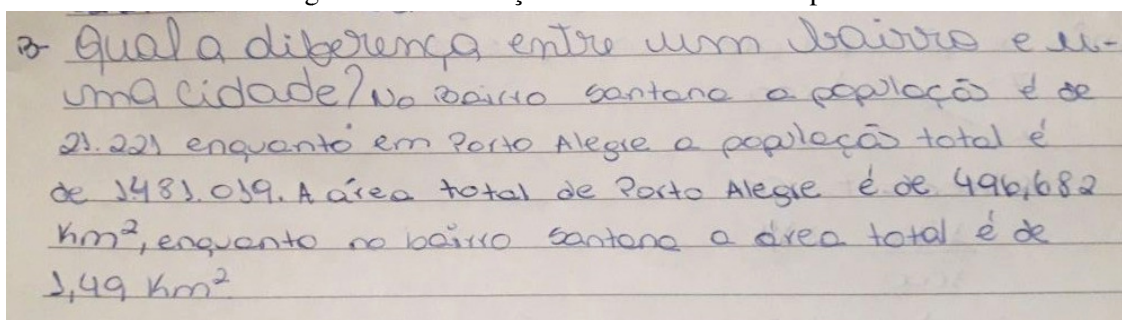 3- Qual a diferença entre um bairro e u-
uma cidade? No Bairro Santana a população é de
21.221 enquanto em Porto Alegre a população total é
de 1.481.019. A área total de Porto Alegre é de 496,682
Km², enquanto no bairro Santana a área total é de
1,49 Km²